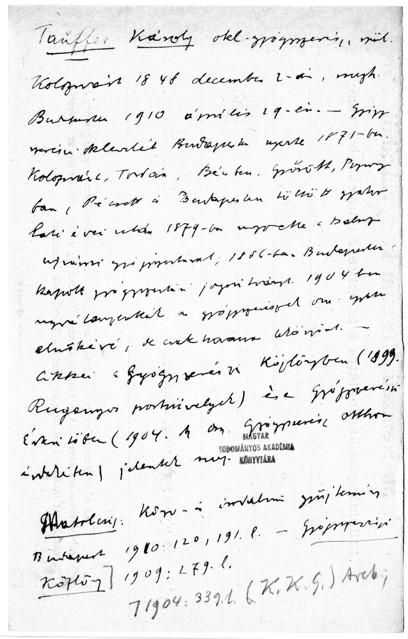 Tauffer Károly okl. gyógyszerész, szül.
Kolozsvárt 1848 december 2-án, megh.
Budapesten 1910 április 29-én. — Gyógy
szerészi oklevelét Budapesten nyerte 1871-ben.
Kolozsvárt, Tordán, Bécsben, Győrött, Pozsony
ban, Pécsett és Budapesten töltött gyakor
lati évei után 1879-ben
1886-ban Budapesten
kapott gyógyszertári jogosítványt. 1904-ben
a gyógyszerészek orsz.
elnökévé, de csak
Cikkei a Gyógyszerészi Közlönyben (1899.
Ruganyos ) és a Gyógyszerészi
Értesítőben (1904. Az orsz. Gyógyszerész otthon
érdekében) jelentek meg.
MAGYAR
TUDOMÁNYOS AKADÉMIA
KÖNYVTÁRA
Matolcsy: Könyv- és irodalmi gyűjtemény
Budapest 1910: 120, 191. l. — Gyógyszerészi
Közlöny 1909: 279. l.
1904: 339. l. (K. K. G.)